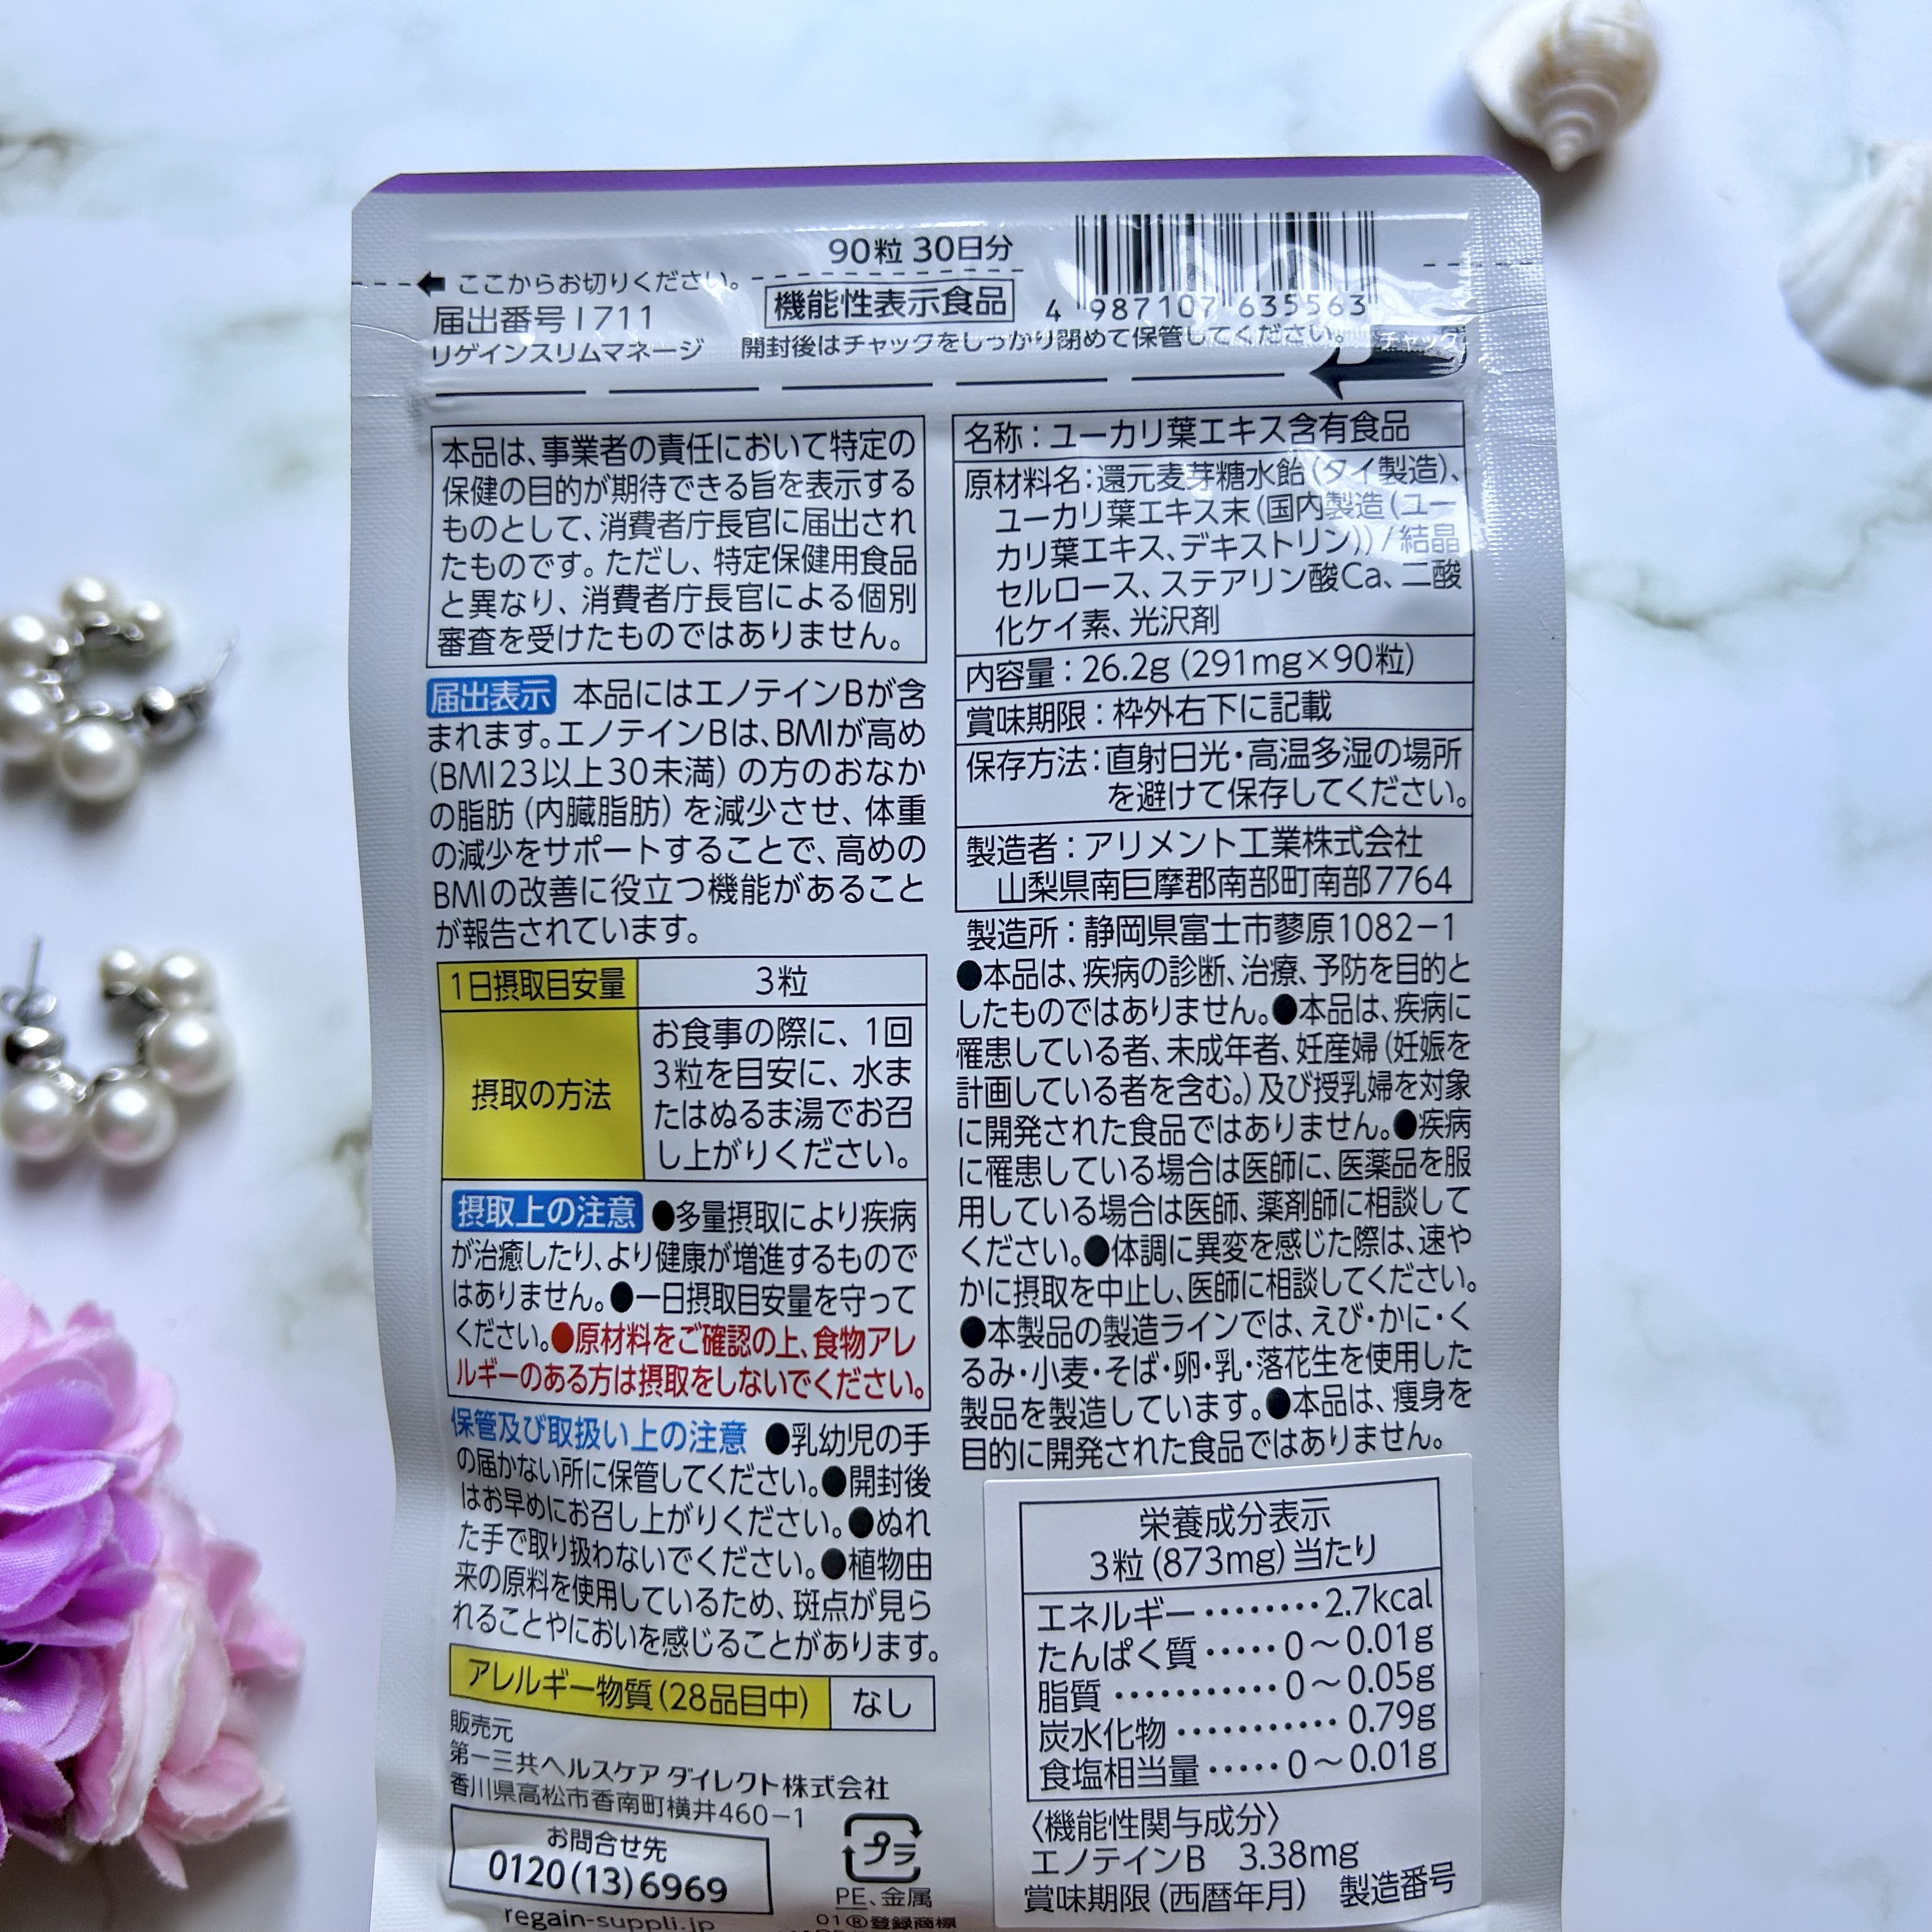 90粒 30日分
ここからお切りください。
届出番号I711
機能性表示食品
4 987107 635563
リゲインスリムマネージ
開封後はチャックをしっかり閉めて保管してください。
チャック
本品は、事業者の責任において特定の
保健の目的が期待できる旨を表示する
ものとして、消費者庁長官に届出され
たものです。ただし、特定保健用食品
と異なり、消費者庁長官による個別
審査を受けたものではありません。
届出表示 本品にはエノテインBが含
まれます。エノテインBは、BMIが高め
(BMI23以上30未満)の方のおなか
の脂肪(内臓脂肪)を減少させ、体重
の減少をサポートすることで、高めの
BMIの改善に役立つ機能があること
が報告されています。
1日摂取目安量 3粒
摂取の方法
お食事の際に、1回
3粒を目安に、水ま
たはぬるま湯でお召
し上がりください。
摂取上の注意 ●多量摂取により疾病
が治癒したり、より健康が増進するもので
はありません。●一日摂取目安量を守って
ください。●原材料をご確認の上、食物アレ
ルギーのある方は摂取をしないでください。
保管及び取扱い上の注意 ●乳幼児の手
の届かない所に保管してください。●開封後
はお早めにお召し上がりください。●ぬれ
た手で取り扱わないでください。●植物由
来の原料を使用しているため、斑点が見ら
れることやにおいを感じることがあります。
アレルギー物質(28品目中) なし
販売元
第一三共ヘルスケア ダイレクト株式会社
香川県高松市香南町横井460-1
お問合せ先
0120(13)6969
regain-suppli.jp
プラ
PE、金属
01®登録商標
名称:ユーカリ葉エキス含有食品
原材料名:還元麦芽糖水飴(タイ製造)、
ユーカリ葉エキス末(国内製造(ユー
カリ葉エキス、デキストリン))/結晶
セルロース、ステアリン酸Ca、二酸
化ケイ素、光沢剤
内容量:26.2g(291mg×90粒)
賞味期限:枠外右下に記載
保存方法:直射日光・高温多湿の場所
を避けて保存してください。
製造者:アリメント工業株式会社
山梨県南巨摩郡南部町南部7764
製造所:静岡県富士市蓼原1082-1
●本品は、疾病の診断、治療、予防を目的と
したものではありません。●本品は、疾病に
罹患している者、未成年者、妊産婦(妊娠を
計画している者を含む。)及び授乳婦を対象
に開発された食品ではありません。●疾病
に罹患している場合は医師に、医薬品を服
用している場合は医師、薬剤師に相談して
ください。●体調に異変を感じた際は、速や
かに摂取を中止し、医師に相談してください。
●本製品の製造ラインでは、えび・かに・く
るみ・小麦・そば・卵・乳・落花生を使用した
製品を製造しています。●本品は、痩身を
目的に開発された食品ではありません。
栄養成分表示
3粒(873mg)当たり
エネルギー········2.7kcal
たんぱく質·····0～0.01g
脂質···········0～0.05g
炭水化物···········0.79g
食塩相当量·····0～0.01g
〈機能性関与成分〉
エノテインB 3.38mg
賞味期限(西暦年月) 製造番号